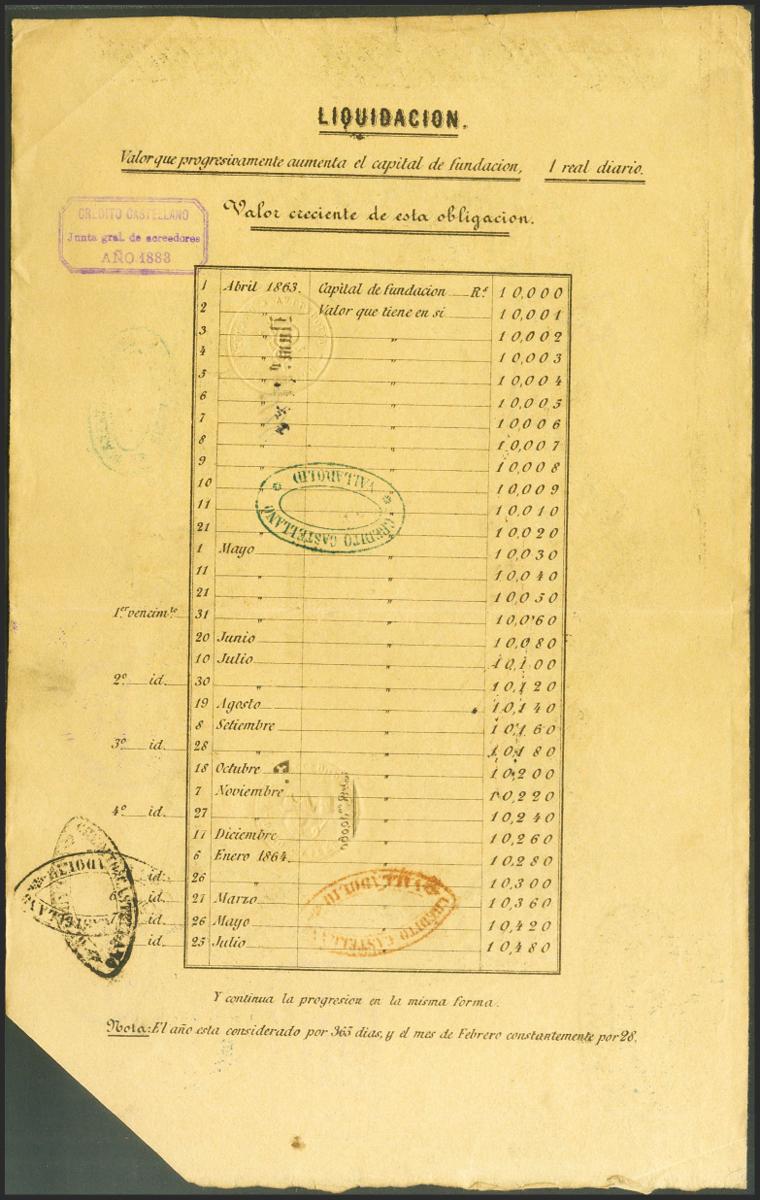 LIQUIDACION.
Valor que progresivamente aumenta el capital de fundacion, 1 real diario.
Valor creciente de esta obligacion.
CREDITO CASTELLANO
Junta gral. de acreedores
AÑO 1883
1 Abril 1863. Capital de fundacion R.s 10,000
2 „ Valor que tiene en si 10,001
3 „ „ 10,002
4 „ „ 10,003
5 „ „ 10,004
6 „ „ 10,005
7 „ „ 10,006
8 „ „ 10,007
9 „ „ 10,008
10 „ „ 10,009
11 „ „ 10,010
21 „ „ 10,020
1 Mayo „ 10,030
11 „ „ 10,040
21 „ „ 10,050
1.er vencim.to 31 „ „ 10,060
20 Junio „ 10,080
10 Julio „ 10,100
2º id. 30 „ „ 10,120
19 Agosto „ 10,140
8 Setiembre „ 10,160
3º id. 28 „ „ 10,180
18 Octubre „ 10,200
7 Noviembre „ 10,220
4º id. 27 „ „ 10,240
17 Diciembre „ 10,260
6 Enero 1864. „ 10,280
id. 26 „ „ 10,300
6 id. 27 Marzo „ 10,360
7 id. 26 Mayo „ 10,420
id. 25 Julio „ 10,480
CREDITO CASTELLANO
VALLADOLID
CREDITO CASTELLANO
VALLADOLID
CREDITO CASTELLANO
VALLADOLID
Y continua la progresion en la misma forma.
Nota: El año esta considerado por 365 dias, y el mes de Febrero constantemente por 28.